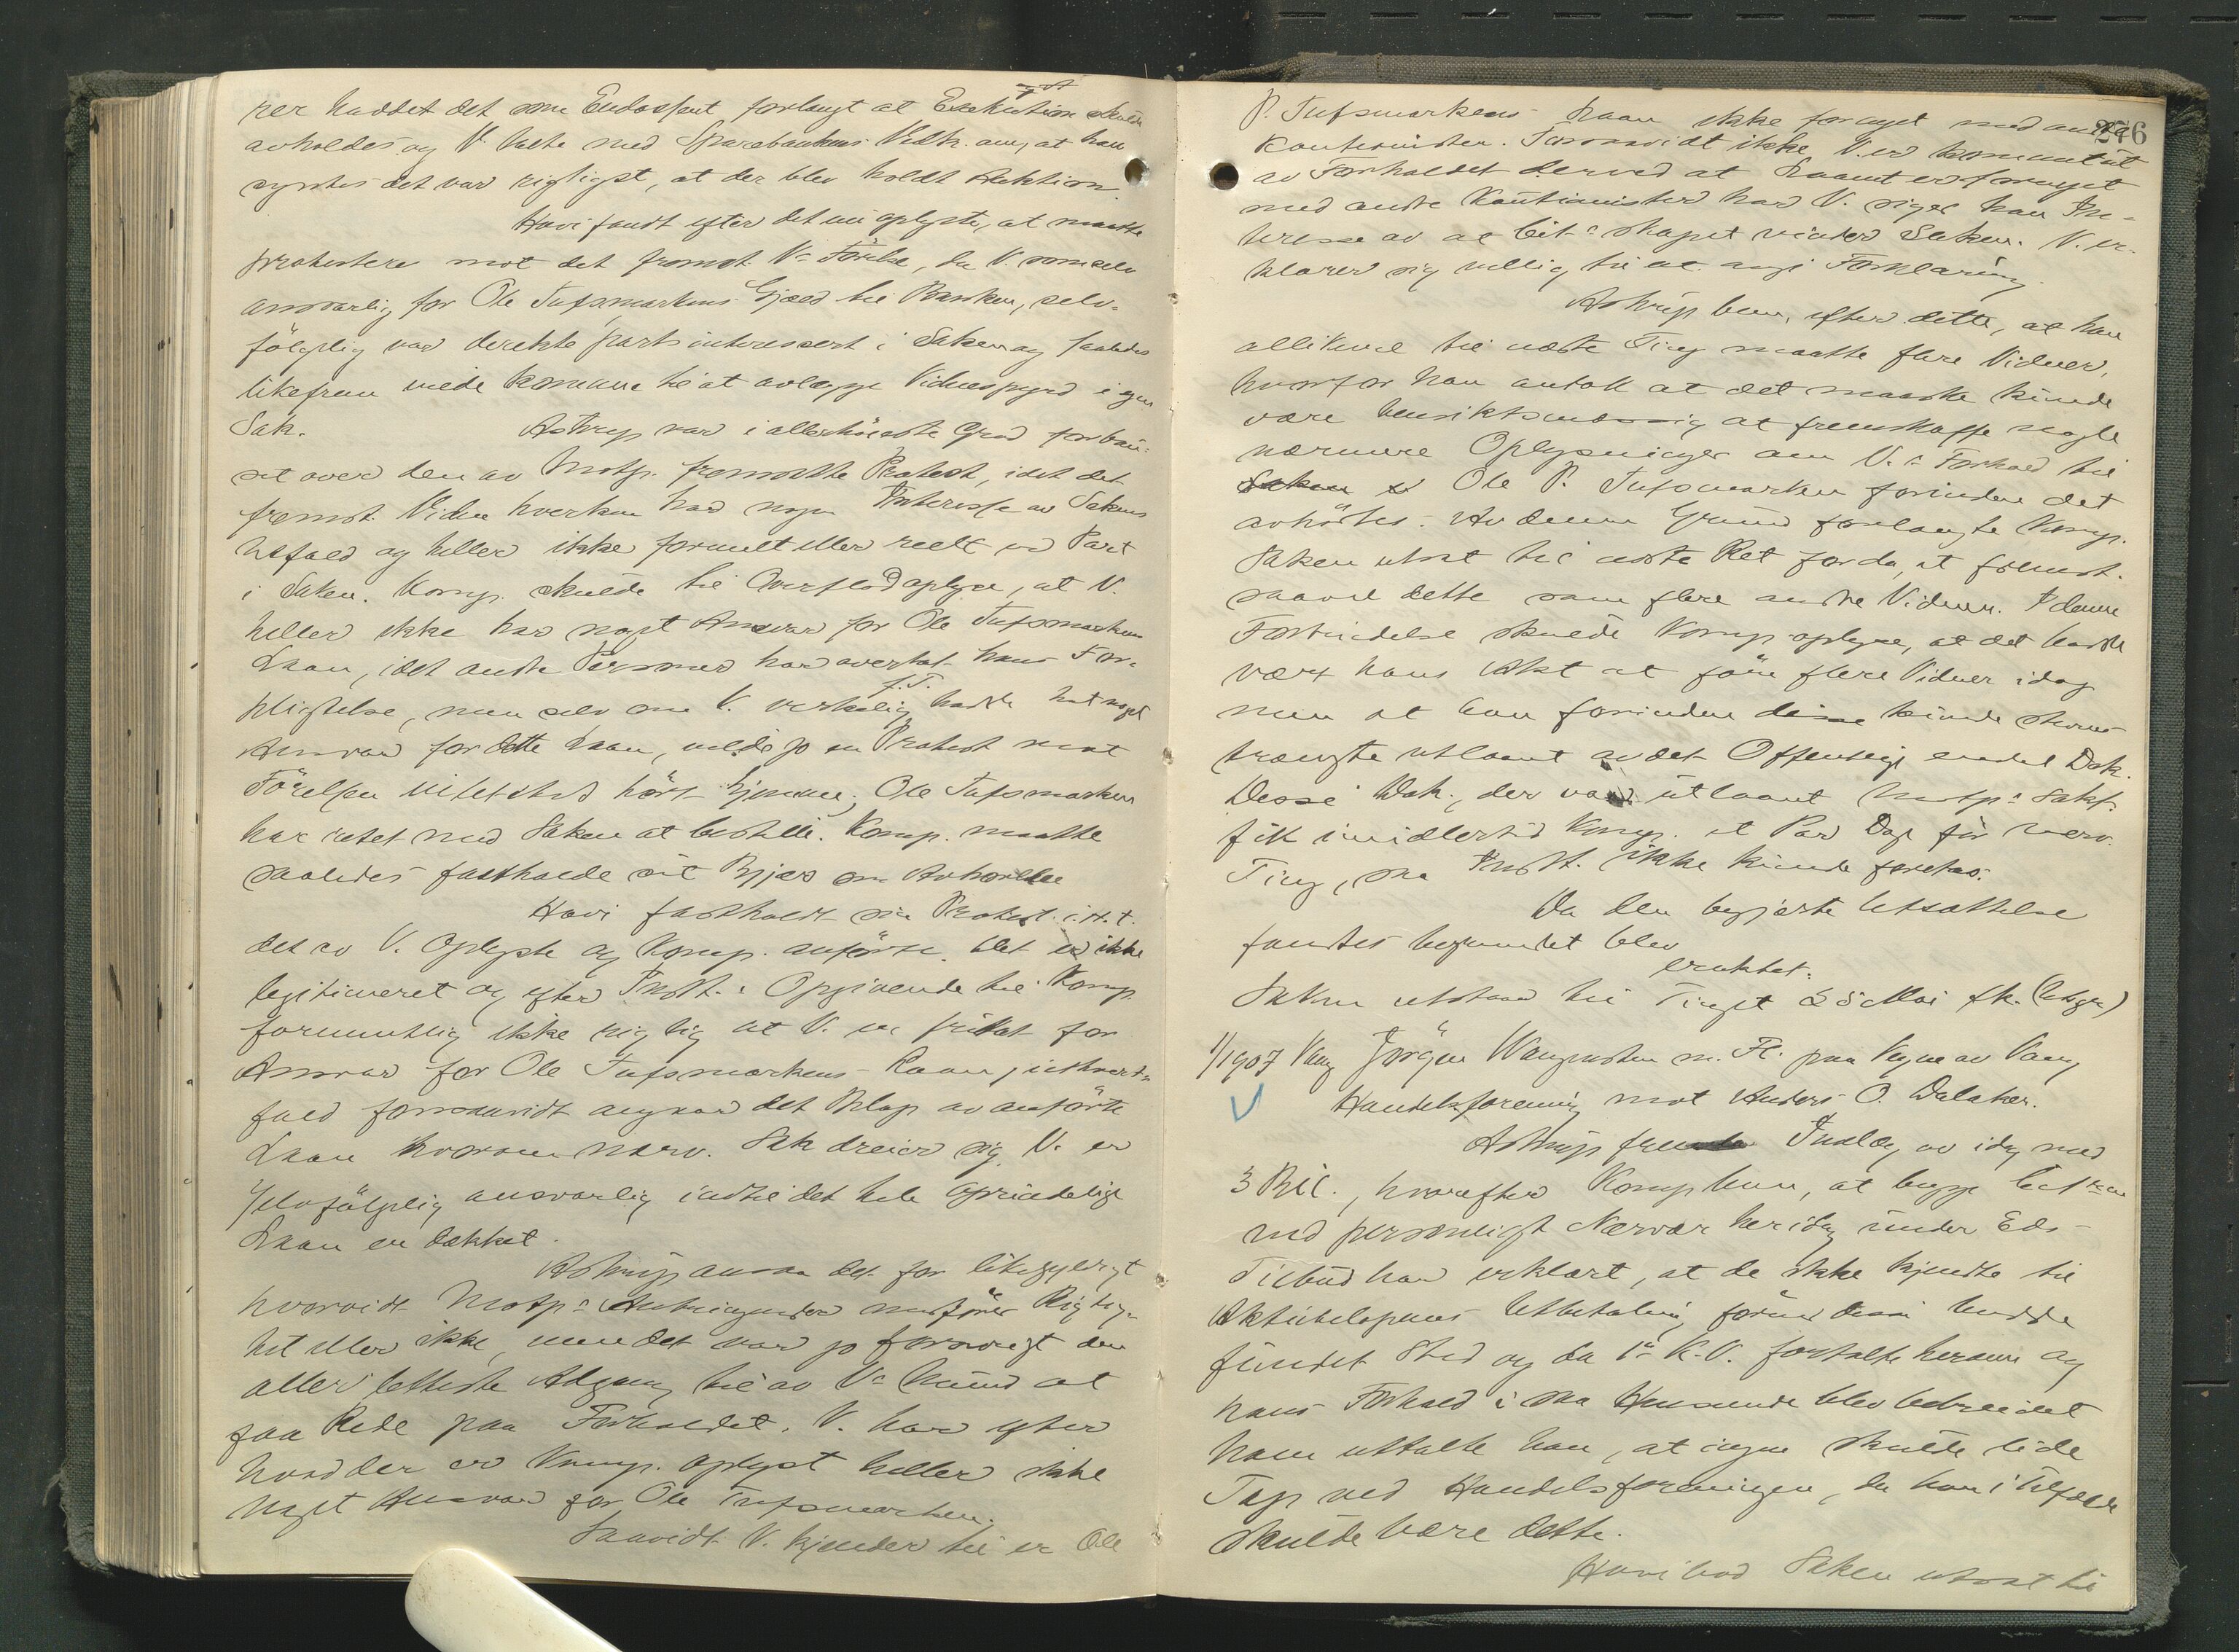 rer haddet det som Endossent forlangt at Exekution skulde
avholdes og V. talte med Sparebankens Vedk. om, at han
syntes det var rigtigst, at der blev holdt Auktion.
Hovi fandt efter det nu oplyste, at maatte
protestere mot det fremst. V.s Förelse, da V. som selv
ansvarlig for Ole Tufsmarkens Gjæld til Banken, selv-
fölgelig var direkte partsinteressert i Saken og saaledes
likefrem vilde komme til at avlægge Vidnespyrd i egen
Sak.
Astrup var i allerhöieste Grad forbau-
set over den av Motp. fremsatte Protest, idet det
fremst. Vidne hverken har nogen Interesse av Sakens
Utfald og heller ikke formelt eller reelt er Part
i Saken. Komp. skulde til Overflod oplyse, at V.
heller ikke har noget Ansvar for Ole Tufsmarkens
Laan, idet andre Personer har overtat hans For-
pligtelse, men selv om V. virkelig f. T. hadde hat noget
Ansvar for dette Laan, vilde jo en Protest mot
Förelsen intetsteds hört hjemme; Ole Tufsmarken
har intet med Saken at bestille. Komp. maatte
saaledes fastholde sit Begjær om Avhörelse
Hovi fastholdt sin Protest i H. t.
det av V. oplyste og Komp. anförte. Det er ikke
legitimeret og efter Inst.s Opgivende til Komp.
formentlig ikke rigtig at V. er fritat for
Ansvar for Ole Tufsmarkens Laan, ialfald
forsaavidt angaar det Belöp av anförte
Laan hvorom nærv. Sak dreier sig. V. er
selvfölgelig ansvarlig indtil det hele oprindelige
Laan er dækket.
Astrup ansaa det for likegyldigt
hvorvidt Motp.s Antydninger medförer Rigtig-
het eller ikke, men det var jo forövrigt den
aller letteste Adgang til av V.s Mund at
faa Rede paa Forholdet. V. har efter
hvad der er Komp. oplyst heller ikke
noget Ansvar for Ole Tufsmarken.
Saavidt V. kjender til er Ole
276
P. Tufsmarkens Laan ikke fornyet med andre
Kautionister. Forsaavidt ikke V. er kommet ut
av Forholdet derved at Laanet er fornyet
med andre Kautionister har V. siger han In-
teresse av at Cit.s skapet vinder Saken. V. er-
klærer sig villig til at avgi Forklaring
Astrup bem. efter dette, at han
allikevel til næste Ting maatte före Vidner,
hvorfor han antok at det maaske kunde
være hensiktsmæssig at fremskaffe nogle
nærmere Oplysninger om V.s Forhold til
Ole P. Tufsmarken forinden det
avhörtes. Av denne Grund forlangte Komp.
Saken utsat til næste Ret for da, at fremst.
saavel dette som flere andre Vidner. I denne
Forbindelse skulde Komp. oplyse, at det hadde
vært hans Akt at före flere Vidner idag
men at han forinden disse kunde
trængte utlaant av det Offentlige endel Dok.
Disse Dok., der var utlaant Motp.s Sakf.
fik imidlertid Komp. et Par Dage för nærv.
Ting, saa Indst. ikke kunde foretas.
Da den begjærte Utsættelse
fandtes begrundet blev
eraktet:
Saken utstaar til Tinget 25 Mai fk. (Utgn)
1/1907 Vang Jörgen Wangensten m. Fl. paa Vegne av Vang
Handelsforening mot Anders O. Dalaker.
Astrup freml. Indlæg av idag med
3 Bil., hvorefter Komp. bem., at begge Cit.rne
ved personligt Nærvær her idag under Eds-
Tilbud har erklært, at de ikke kjendte til
Aktiebelöpenes Utbetaling, förend denne hadde
fundet Sted og da 1ste K.V. fortalte herom og
hans Forhold i saa Henseende blev bebreidet
ham uttalte han, at ingen skulde lide
Tap ved Handelsforeningen, da han i Tilfælde
skulde bære dette.
Hovi bad Saken utsat til